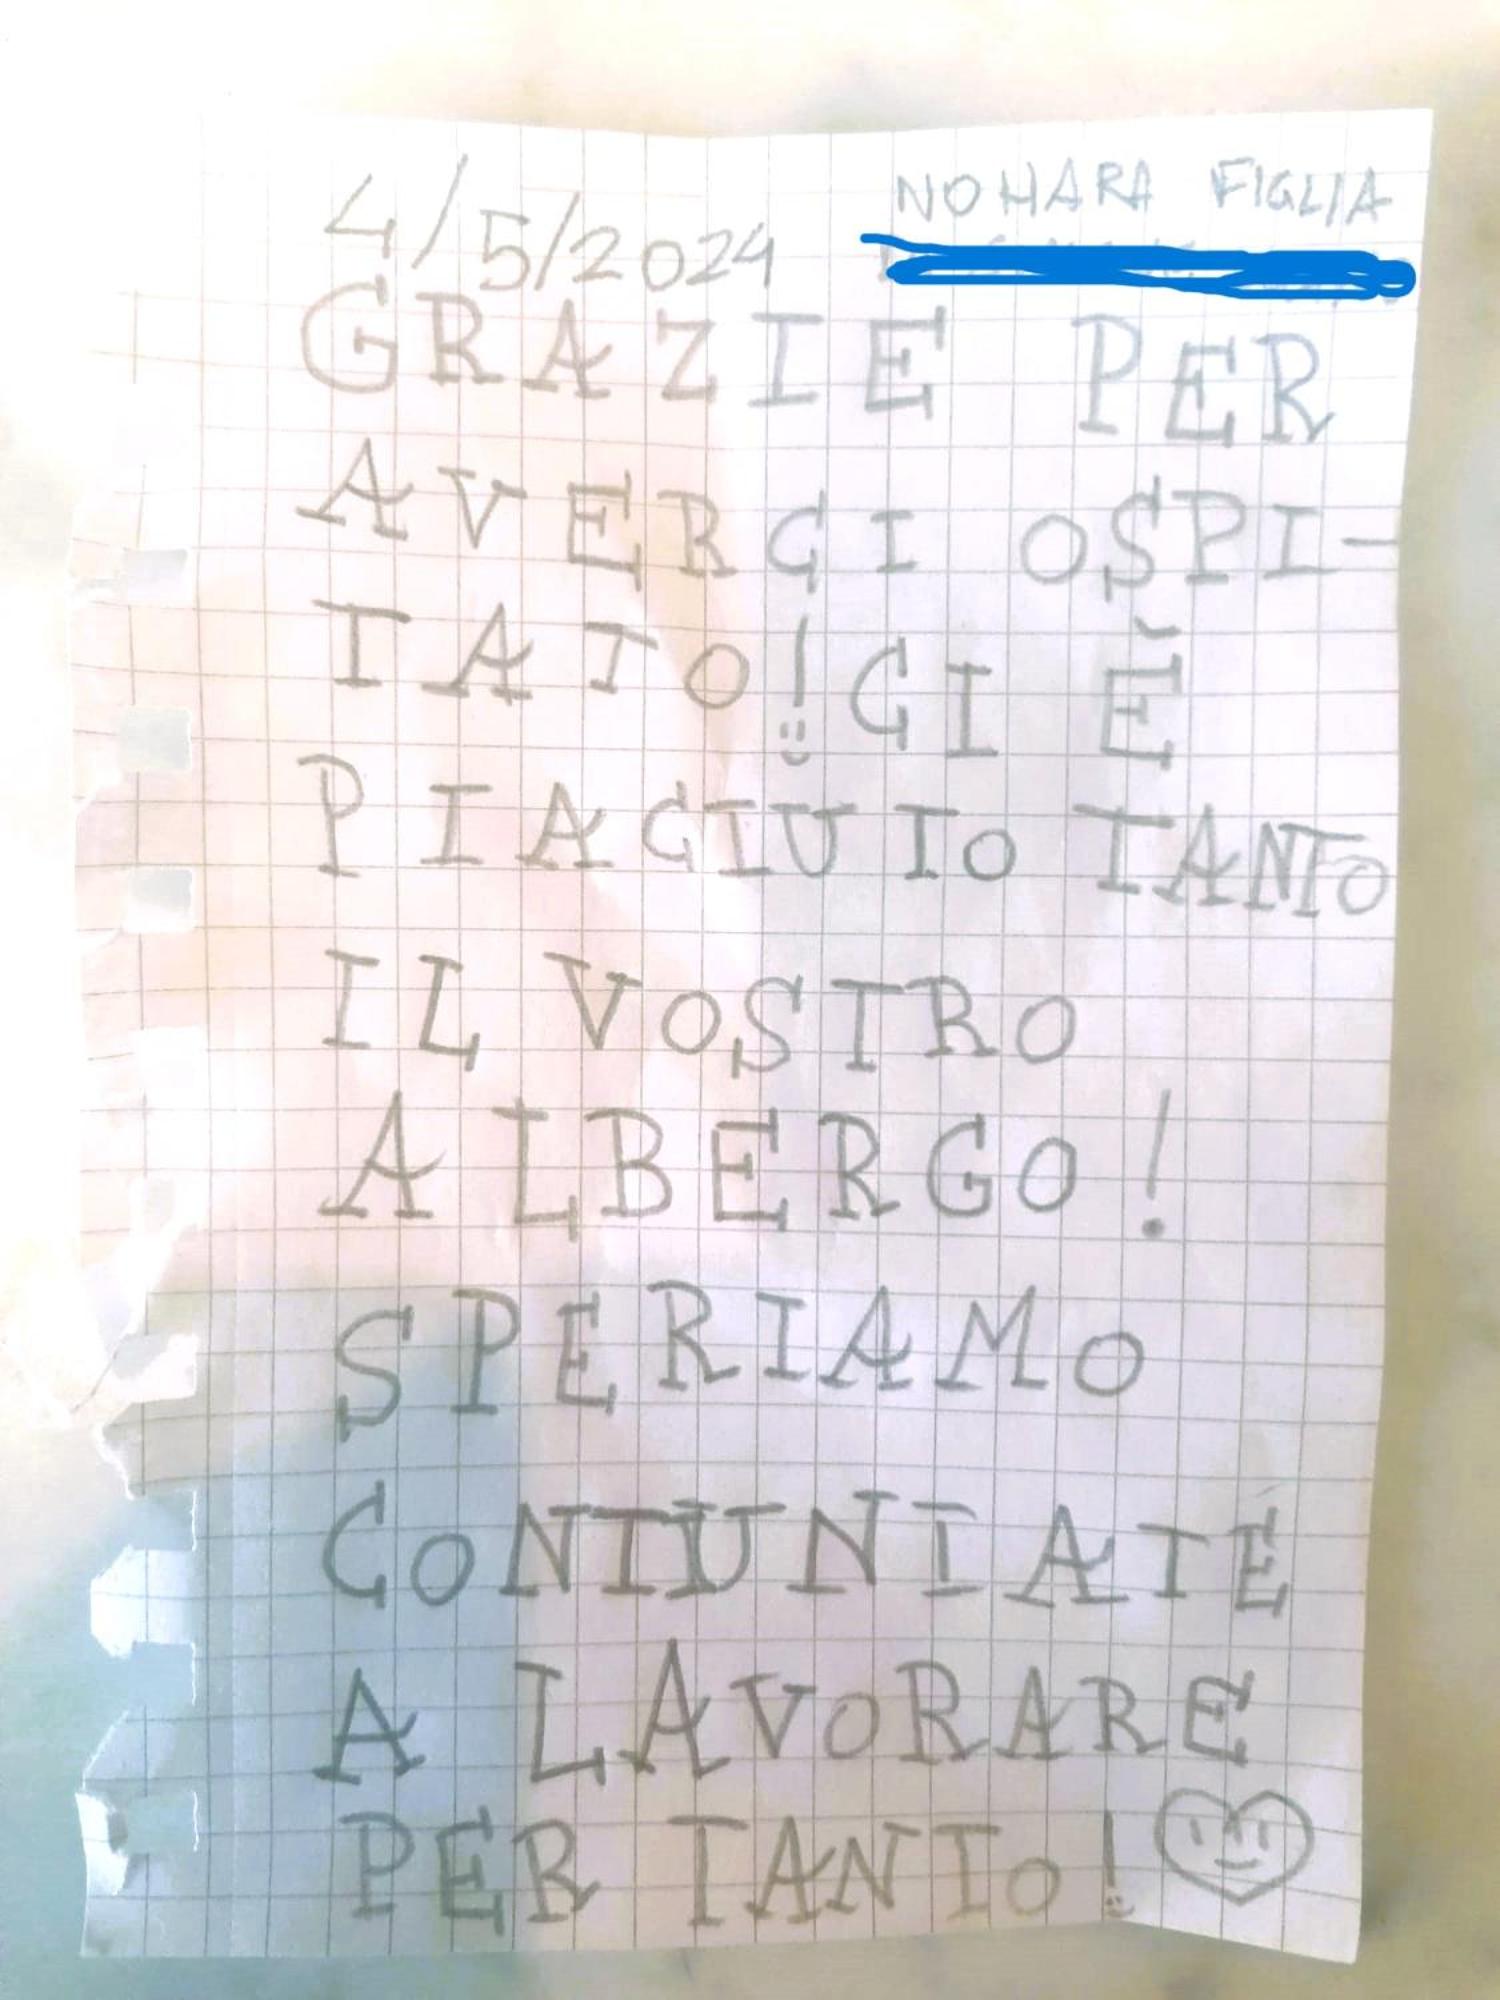 4/5/2024
NOHARA FIGLIA
GRAZIE PER
AVERCI OSPI-
TATO! CI È
PIACIUTO TANTO
IL VOSTRO
ALBERGO!
SPERIAMO
CONTIUNIATE
A LAVORARE
PER TANTO!